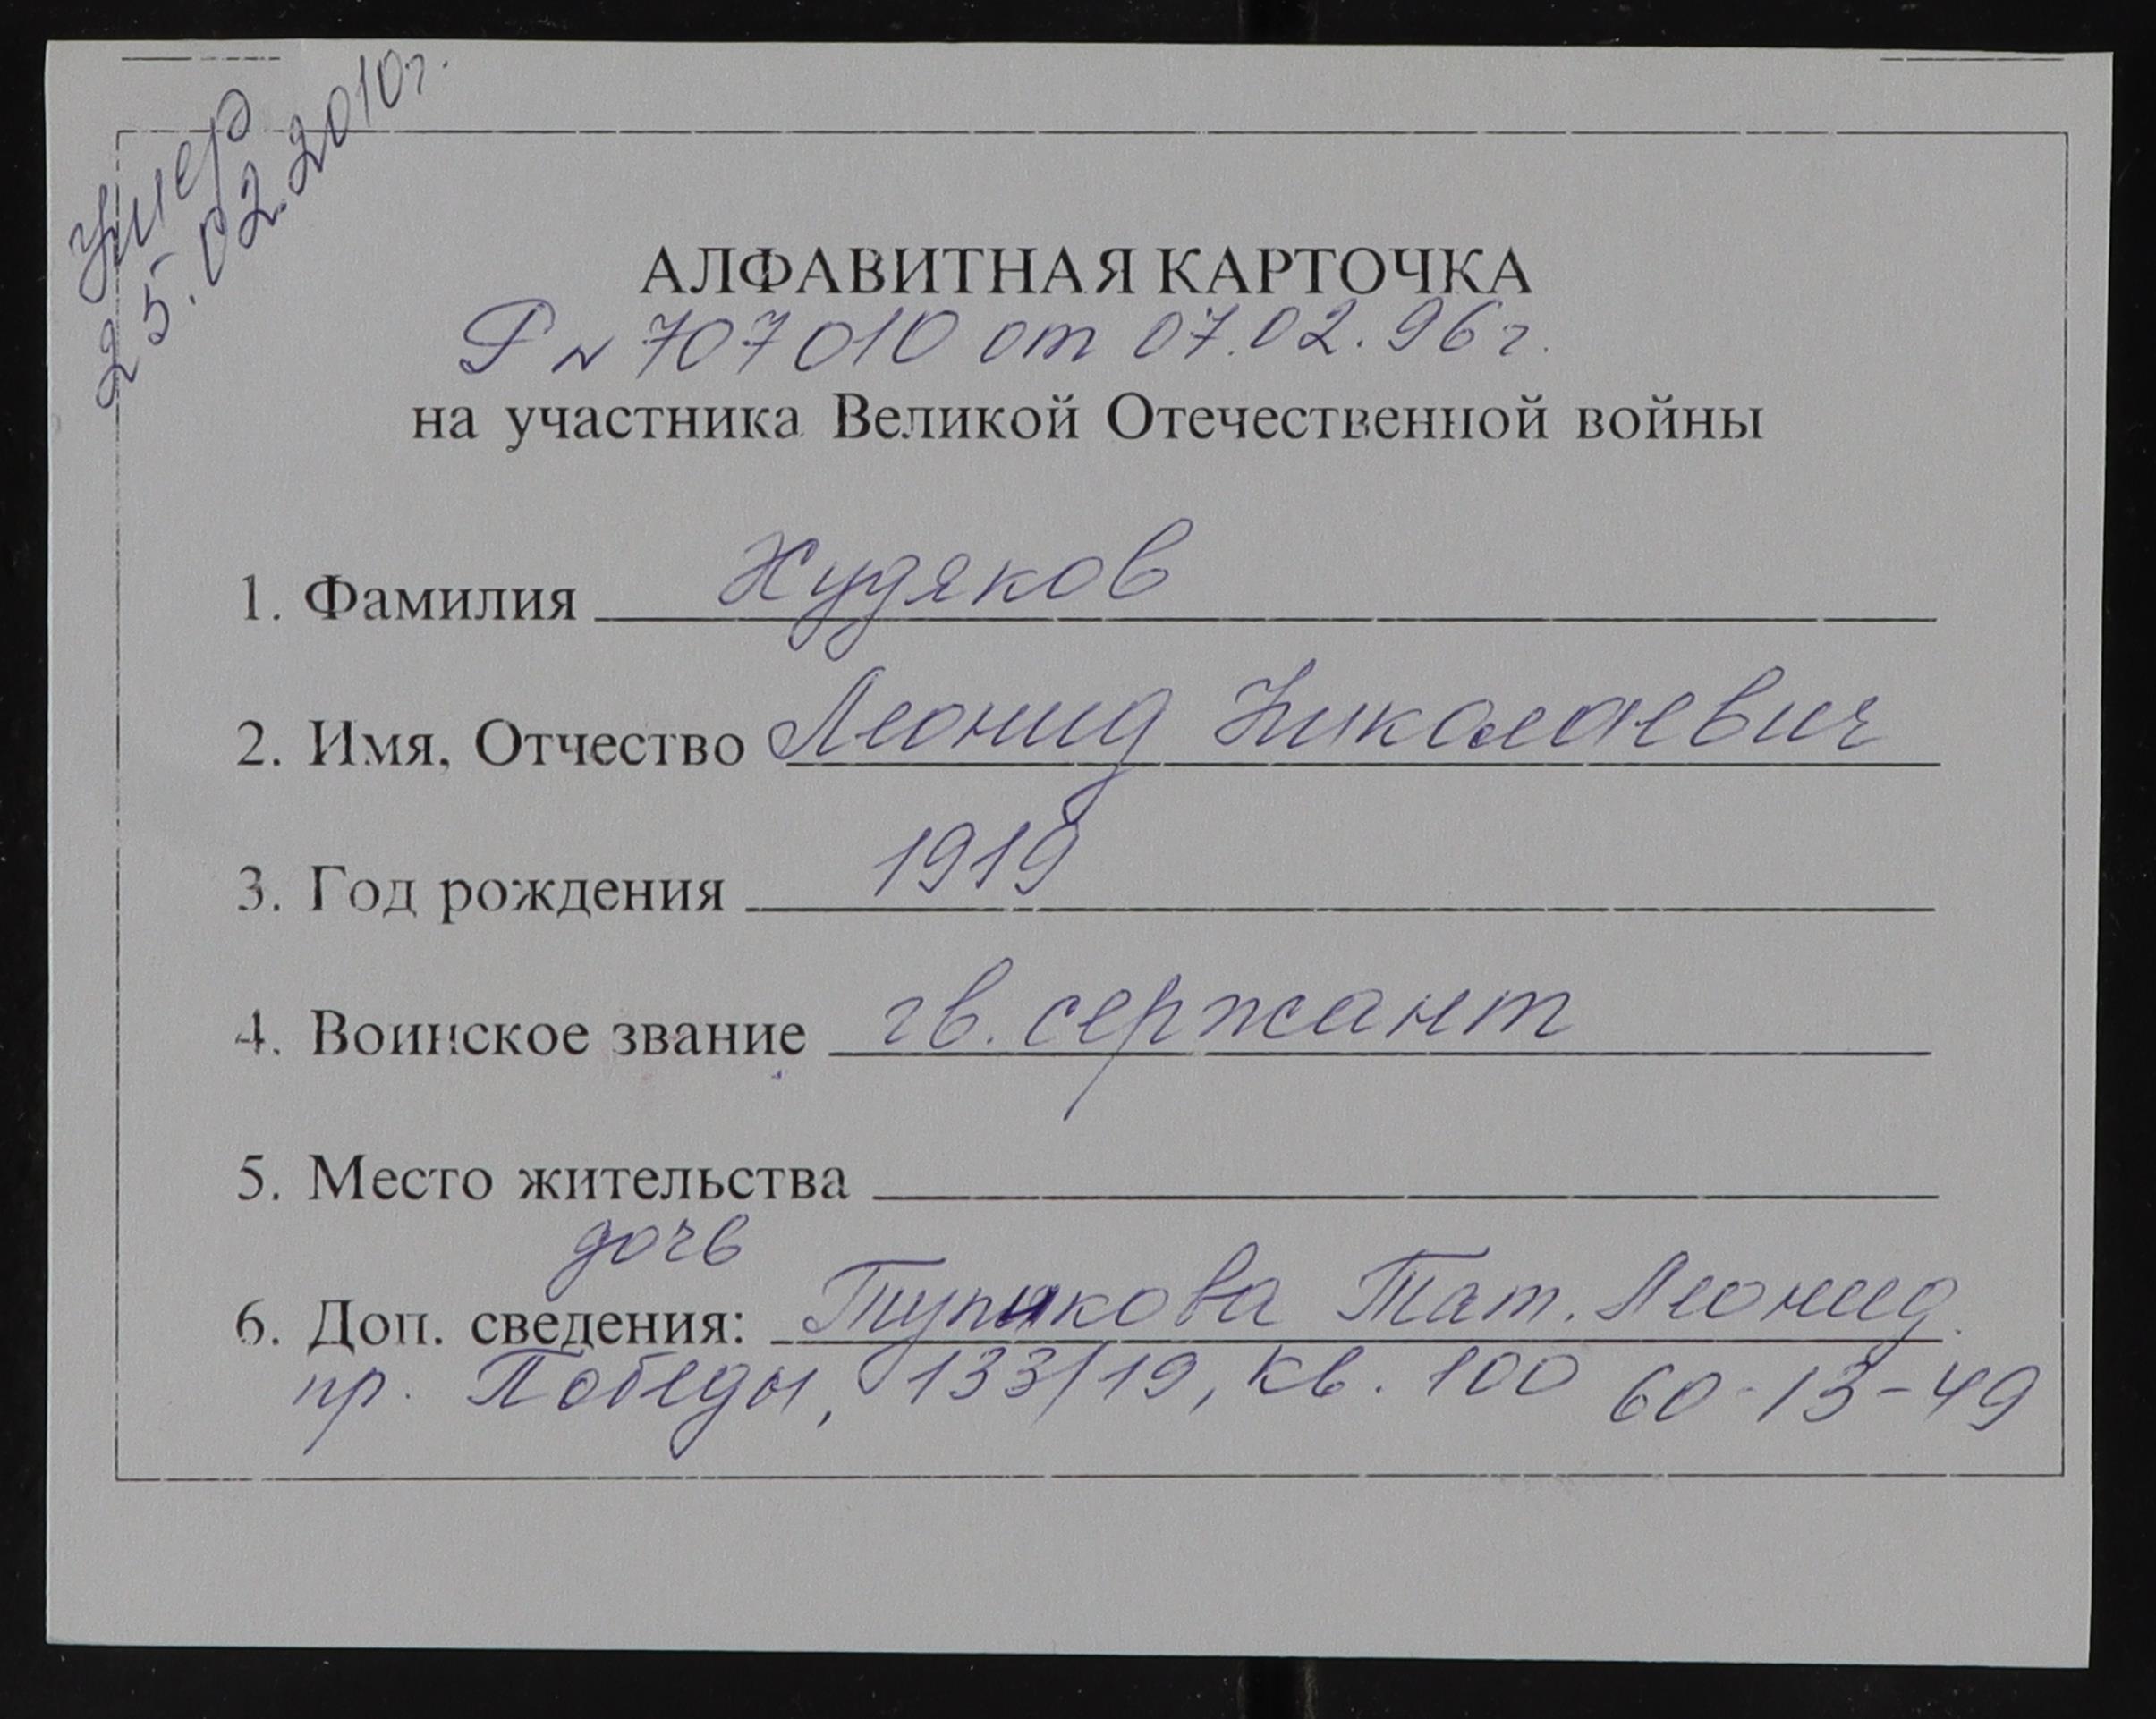 умер
25.02.2010г.
АЛФАВИТНАЯ КАРТОЧКА
Р № 707010 от 07.02.96г.
на участника Великой Отечественной войны
1. Фамилия Худяков
2. Имя, Отчество Леонид Николаевич
3. Год рождения 1919
4. Воинское звание гв. сержант
5. Место жительства
дочь
6. Доп. сведения: Тупикова Тат. Леонид.
пр. Победы, 133/19, кв. 100 60-13-49